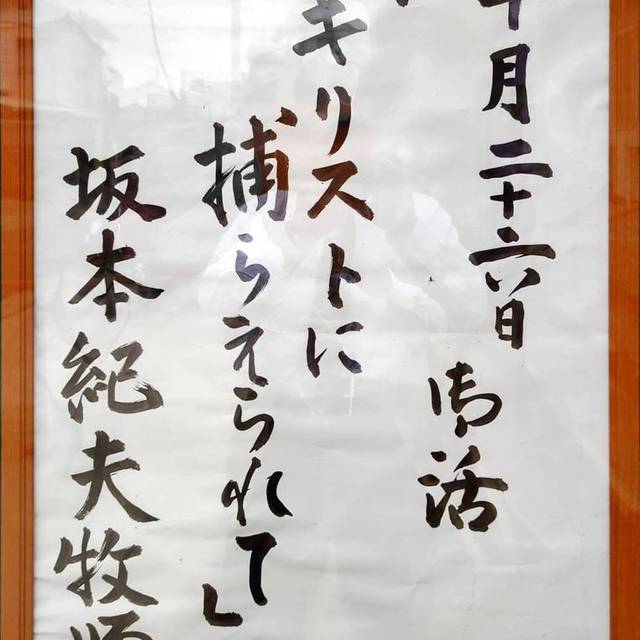 十月二十六日 御活
キリストに
捕らえられて」
坂本紀夫牧師